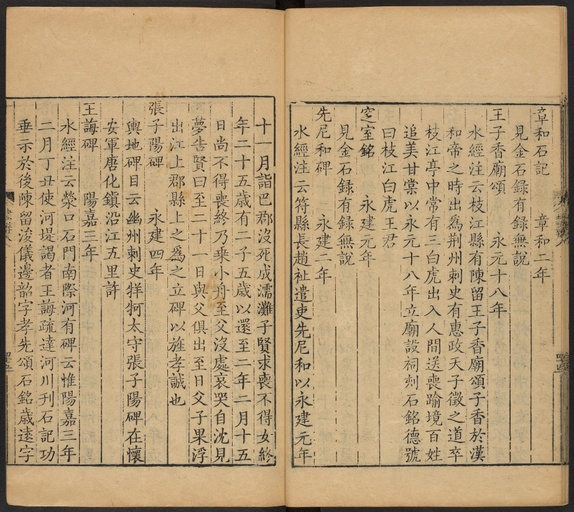 章和石記　章和二年
見金石録有録無說
王子香廟頌　永元十八年
水經注云枝江縣有陳留王子香廟頌子香於漢
和帝之時出為荆州刺史有惠政天子徵之道卒
枝江亭中常有三白虎出入人間送喪踰境百姓
追美甘棠以永元十八年立廟設祠刻石銘德號
曰枝江白虎王君
㝎室銘　永建元年
見金石録有録無說
先尼和碑　永建二年
水經注云符縣長趙祉遣吏先尼和以永建元年
十一月詣巴郡沒死成濡灘子賢求喪不得女終
年二十五歲有二子五歲以還至二年二月十五
日尚不得喪終乃乘小舟至父沒處哀哭自沈見
夢告賢曰至二十一日與父俱出至日父子果浮
出江上郡縣上之為之立碑以旌孝誠也
張子陽碑　永建四年
輿地碑目云幽州刺史牂牁太守張子陽碑在懷
安軍唐化鎮沿江五里許
王誨碑　陽嘉三年
水經注云滎口石門南際河有碑云惟陽嘉三年
二月丁丑使河堤謁者王誨疏達河川刋石記功
垂示於後陳留浚儀邊韶字孝先頌石銘歲遠字